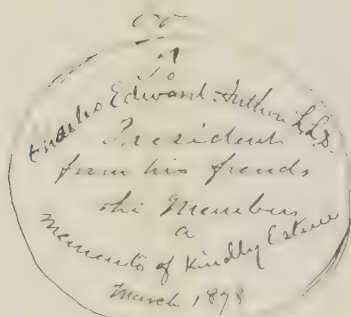 To
Charles Edward Anthon LL.D.
President
from his friends
the Members
a
memento of Kindly Esteem
March 1878